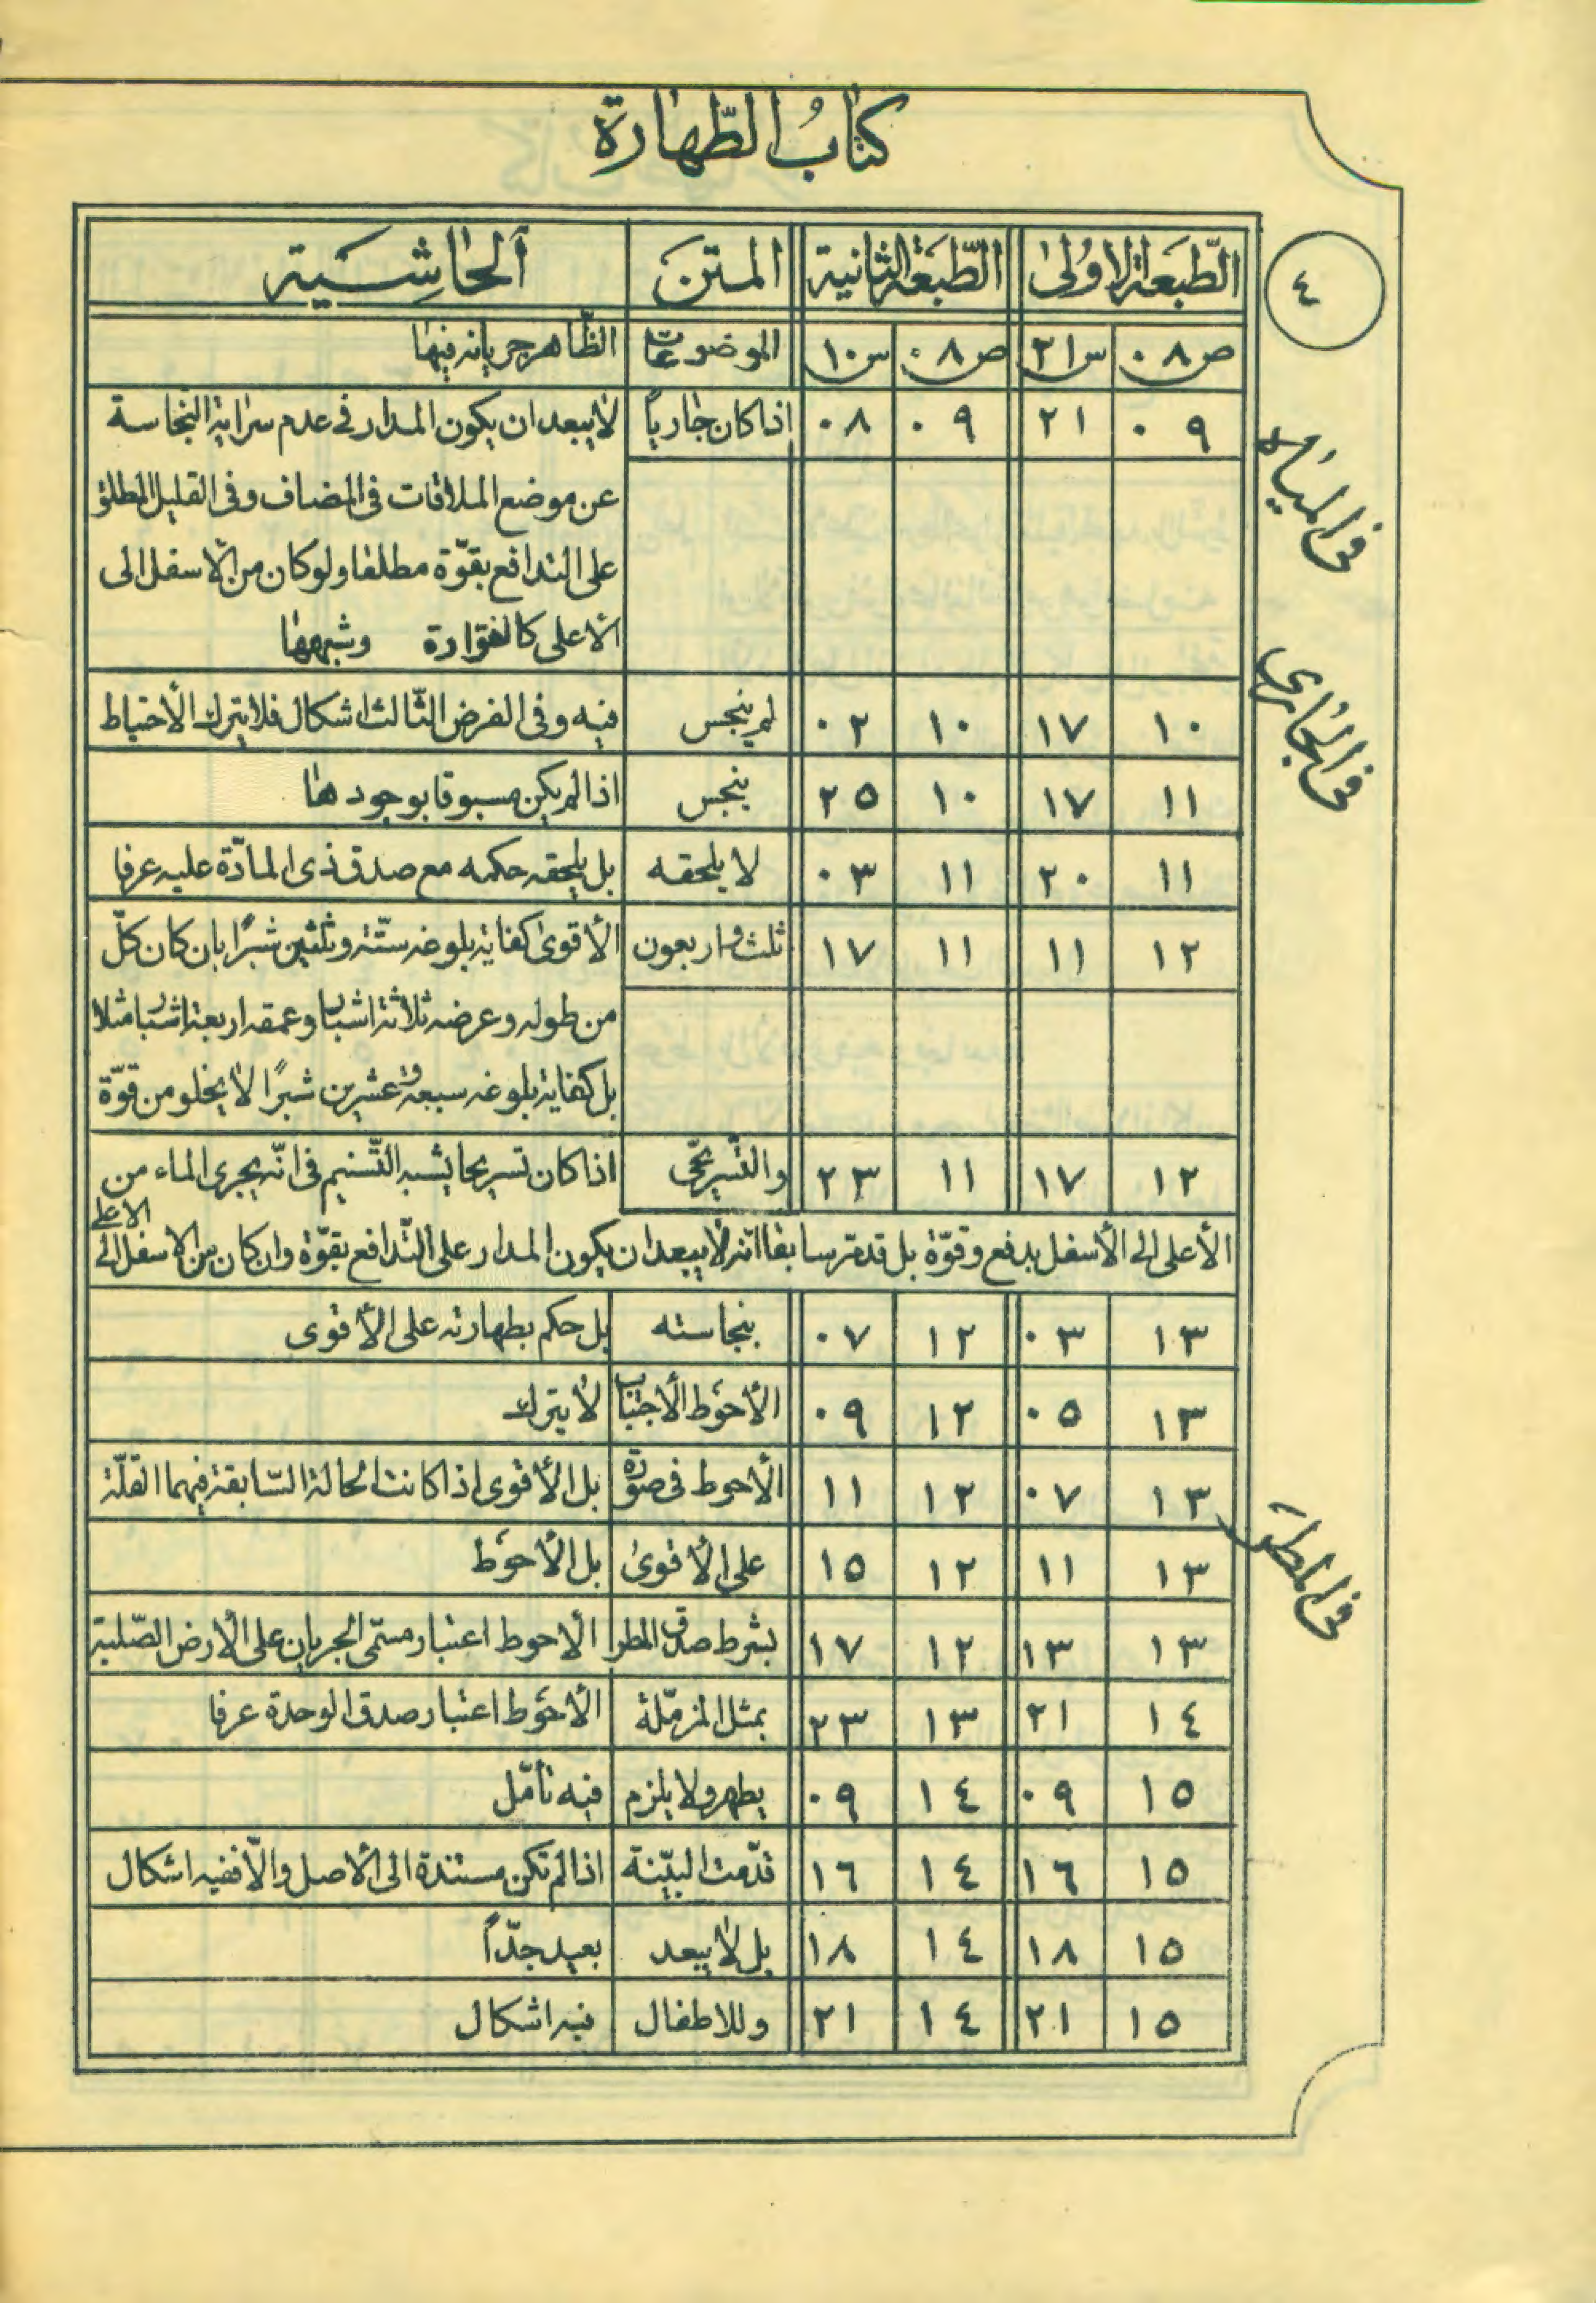 كتابُ الطّهارة
٤
الطّبعة الاوُلىٰ الطّبعَة الثانية المتن ألحٰاشِسَية
ص٠٨ س٢١ ص٠٨ س١٠ الموضوعات الظّاهر جريانه فيهٰا
فى المياه
٠٩ ٢١ ٠٩ ٠٨ اذا كان جٰارياً لايبعد ان يكون المدار فى عدم سرٰاية النجاسة
عن موضع الملاقات فى المضاف وفى القليل المطلق
على التدافع بقوّة مطلقا ولو كان من الأسفل الى
الأعلى كالفوّارة وشبهها
فى الجٰارى
١٠ ١٧ ١٠ ٠٢ لم ينجس فيه وفى الفرض الثّالث اشكال فلايترك الأحتياط
١١ ١٧ ١٠ ٢٥ ينجس اذا لم يكن مسبوقا بوجودهٰا
١١ ٢٠ ١١ ٠٣ لا يلحقه بل يلحقه حكمه مع صدق ذى المادّة عليه عرفا
١٢ ١١ ١١ ١٧ ثلث واربعون الأقوىٰ كفاية بلوغه ستّة وثلثين شبرًا بان كان كلّ
من طوله وعرضه ثلاثة اشبار وعمقه اربعة اشبار مثلا
بل كفاية بلوغه سبعة وعشرين شبرًا لايخلو من قوّة
١٢ ١٧ ١١ ٢٣ والتّسريحّى اذا كان تسريحا يشبه التّسنيم فى انّه يجرى الماء من
الأعلى الى الأسفل بدفع وقوّة بل قد مرّ سابقا انّه لايبعد ان يكون المدار على التّدافع بقوّة وان كان من الاسفل الى الاعلى
١٣ ٠٣ ١٢ ٠٧ بنجاسته بل حكم بطهارته على الأقوى
١٣ ٠٥ ١٢ ٠٩ الأحوَط الأجتناب لا يترك
فى المطرَ
١٣ ٠٧ ١٢ ١١ الأحوط فى صورة بل الأقوى اذا كانت الحالة السّابقة فيهما القلّة
١٣ ١١ ١٢ ١٥ على الأقوىٰ بل الأحوَط
١٣ ١٣ ١٢ ١٧ بشرط صدق المطر الأحوط اعتبار مسمّى الجريان على الأرض الصّلبة
١٤ ٢١ ١٣ ٢٣ بمثل المزمّلة الأحوَط اعتبار صدق الوحدة عرفا
١٥ ٠٩ ١٤ ٠٩ يطهر ولا يلزم فيه تأمّل
١٥ ١٦ ١٤ ١٦ قدّمت البيّنة اذا لم تكن مستندة الى الأصل والاّ ففيه اشكال
١٥ ١٨ ١٤ ١٨ بل لايبعد بعيد جدّاً
١٥ ٢١ ١٤ ٢١ وللاطفال فيه اشكال